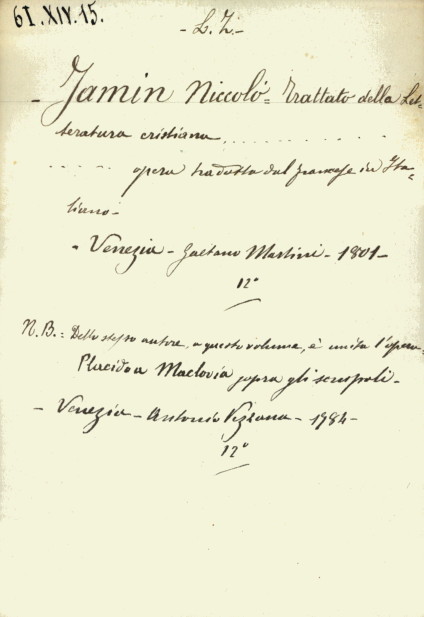 61.XIV.15.
- L. Z. -
- Jamin Niccolò = Trattato della Let=
teratura cristiana, . . . . . . . . . .
. . . . . opera tradotta dal francese in Ita=
liano -
- Venezia - Gaetano Martini - 1801 -
12°
N. B.: Dello stesso autore, a questo volume, è unita l'opera
Placido a Maclovia sopra gli scrupoli -
- Venezia - Antonio - 1784 -
12°